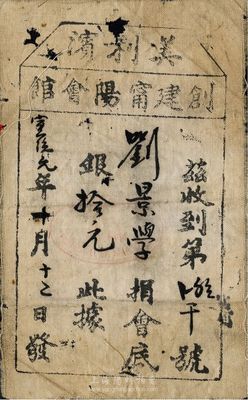 美利濱
創建甯陽會館
茲收到第號
劉景學捐會底
銀拾元此據
宣統元年十月十二日發